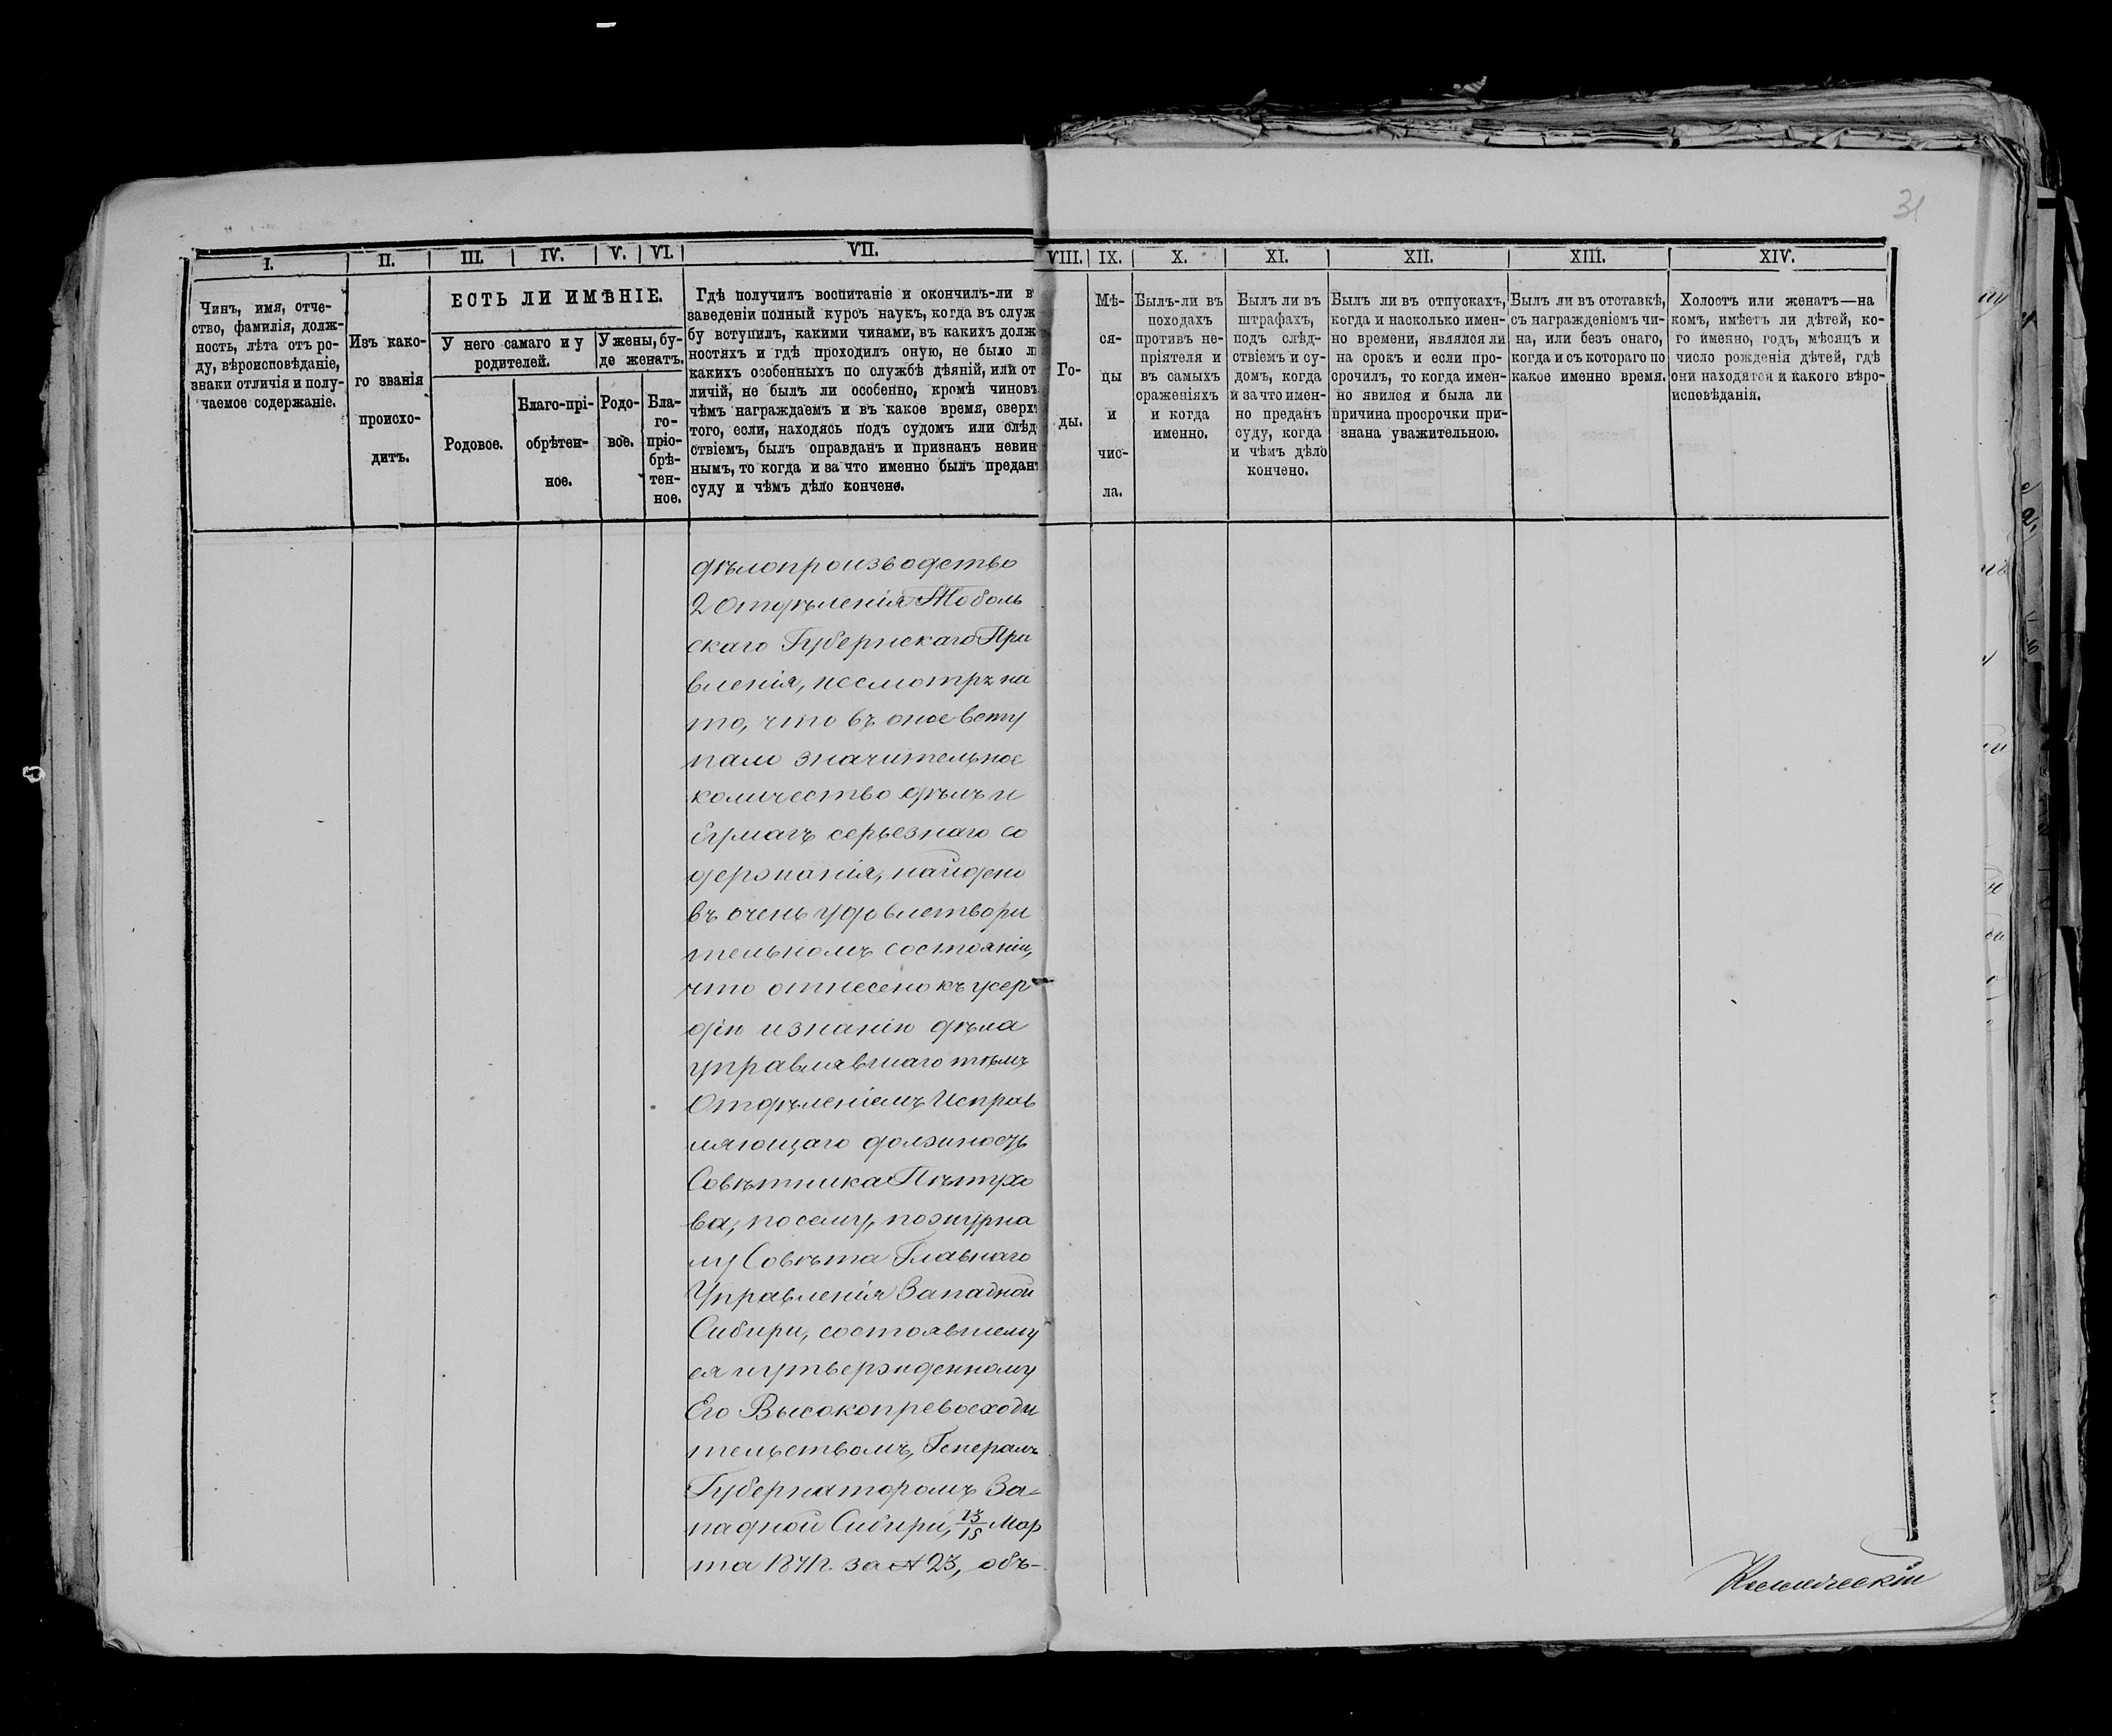 31
I.
II.
III.
IV.
V.
VI.
VII.
VIII.
IX.
X.
XI.
XII.
XIII.
XIV.
Чинъ, имя, отче-
ство, фамилія, долж-
ность, лѣта отъ ро-
ду, вѣроисповѣданіе,
знаки отличія и полу-
чаемое содержаніе.
Изъ како-
го званія
происхо-
дитъ.
ЕСТЬ ЛИ ИМѢНІЕ.
У него самаго и у
родителей.
У жены, бу-
де женатъ.
Родовое.
Благо-прі-
обрѣтен-
ное.
Родо-
вое.
Бла-
го-
прі-
обрѣ-
тен-
ное.
Гдѣ получилъ воспитаніе и окончилъ-ли в
заведеніи полный курсъ наукъ, когда въ служ
бу вступилъ, какими чинами, въ какихъ долж
ностяхъ и гдѣ проходилъ оную, не было л
какихъ особенныхъ по службѣ дѣяній, или от
личій, не былъ ли особенно, кромѣ чиновъ
чѣмъ награждаемъ и въ какое время, сверхъ
того, если, находясь подъ судомъ или слѣд
ствіемъ, былъ оправданъ и признанъ невин
нымъ, то когда и за что именно былъ преданъ
суду и чѣмъ дѣло кончено.
Го-
ды.
Мѣ-
ся-
цы
и
чис-
ла.
Былъ-ли въ
походахъ
противъ не-
пріятеля и
въ самыхъ
сраженіяхъ
и когда
именно.
Былъ ли въ
штрафахъ,
подъ слѣд-
ствіемъ и су-
домъ, когда
и за что имен-
но преданъ
суду, когда
и чѣмъ дѣло
кончено.
Былъ ли въ отпускахъ,
когда и насколько имен-
но времени, являлся ли
на срокъ и если про-
срочилъ, то когда имен-
но явился и была ли
причина просрочки при-
знана уважительною.
Былъ ли въ отставкѣ,
съ награжденіемъ чи-
на, или безъ онаго,
когда и съ котораго по
какое именно время.
Холостъ или женатъ—на
комъ, имѣетъ ли дѣтей, ко-
го именно, годъ, мѣсяцъ и
число рожденія дѣтей, гдѣ
они находятся и какого вѣро-
исповѣданія.
дѣлопроизводство
2 Отдѣленія Тоболь
скаго Губернскаго Пра
вленія, несмотря на
то, что въ оное всту
пало значительное
количество дѣлъ и
бумагъ серьезнаго со
держанія, найдено
въ очень удовлетвори
тельномъ состояніи,
что отнесено къ усер
дію и знанію дѣла
управлявшаго тѣмъ
Отдѣленіемъ Исправ
ляющаго должность
Совѣтника Пѣтухо
ва, посему, по журна
лу Совѣта Главнаго
Управленія Западной
Сибири, состоявшему
ся и утвержденному
Его Высокопревосходи
тельствомъ, Генералъ
Губернаторомъ За-
падной Сибири, 13/15 Мар
та 1871г. за № 23, объ-